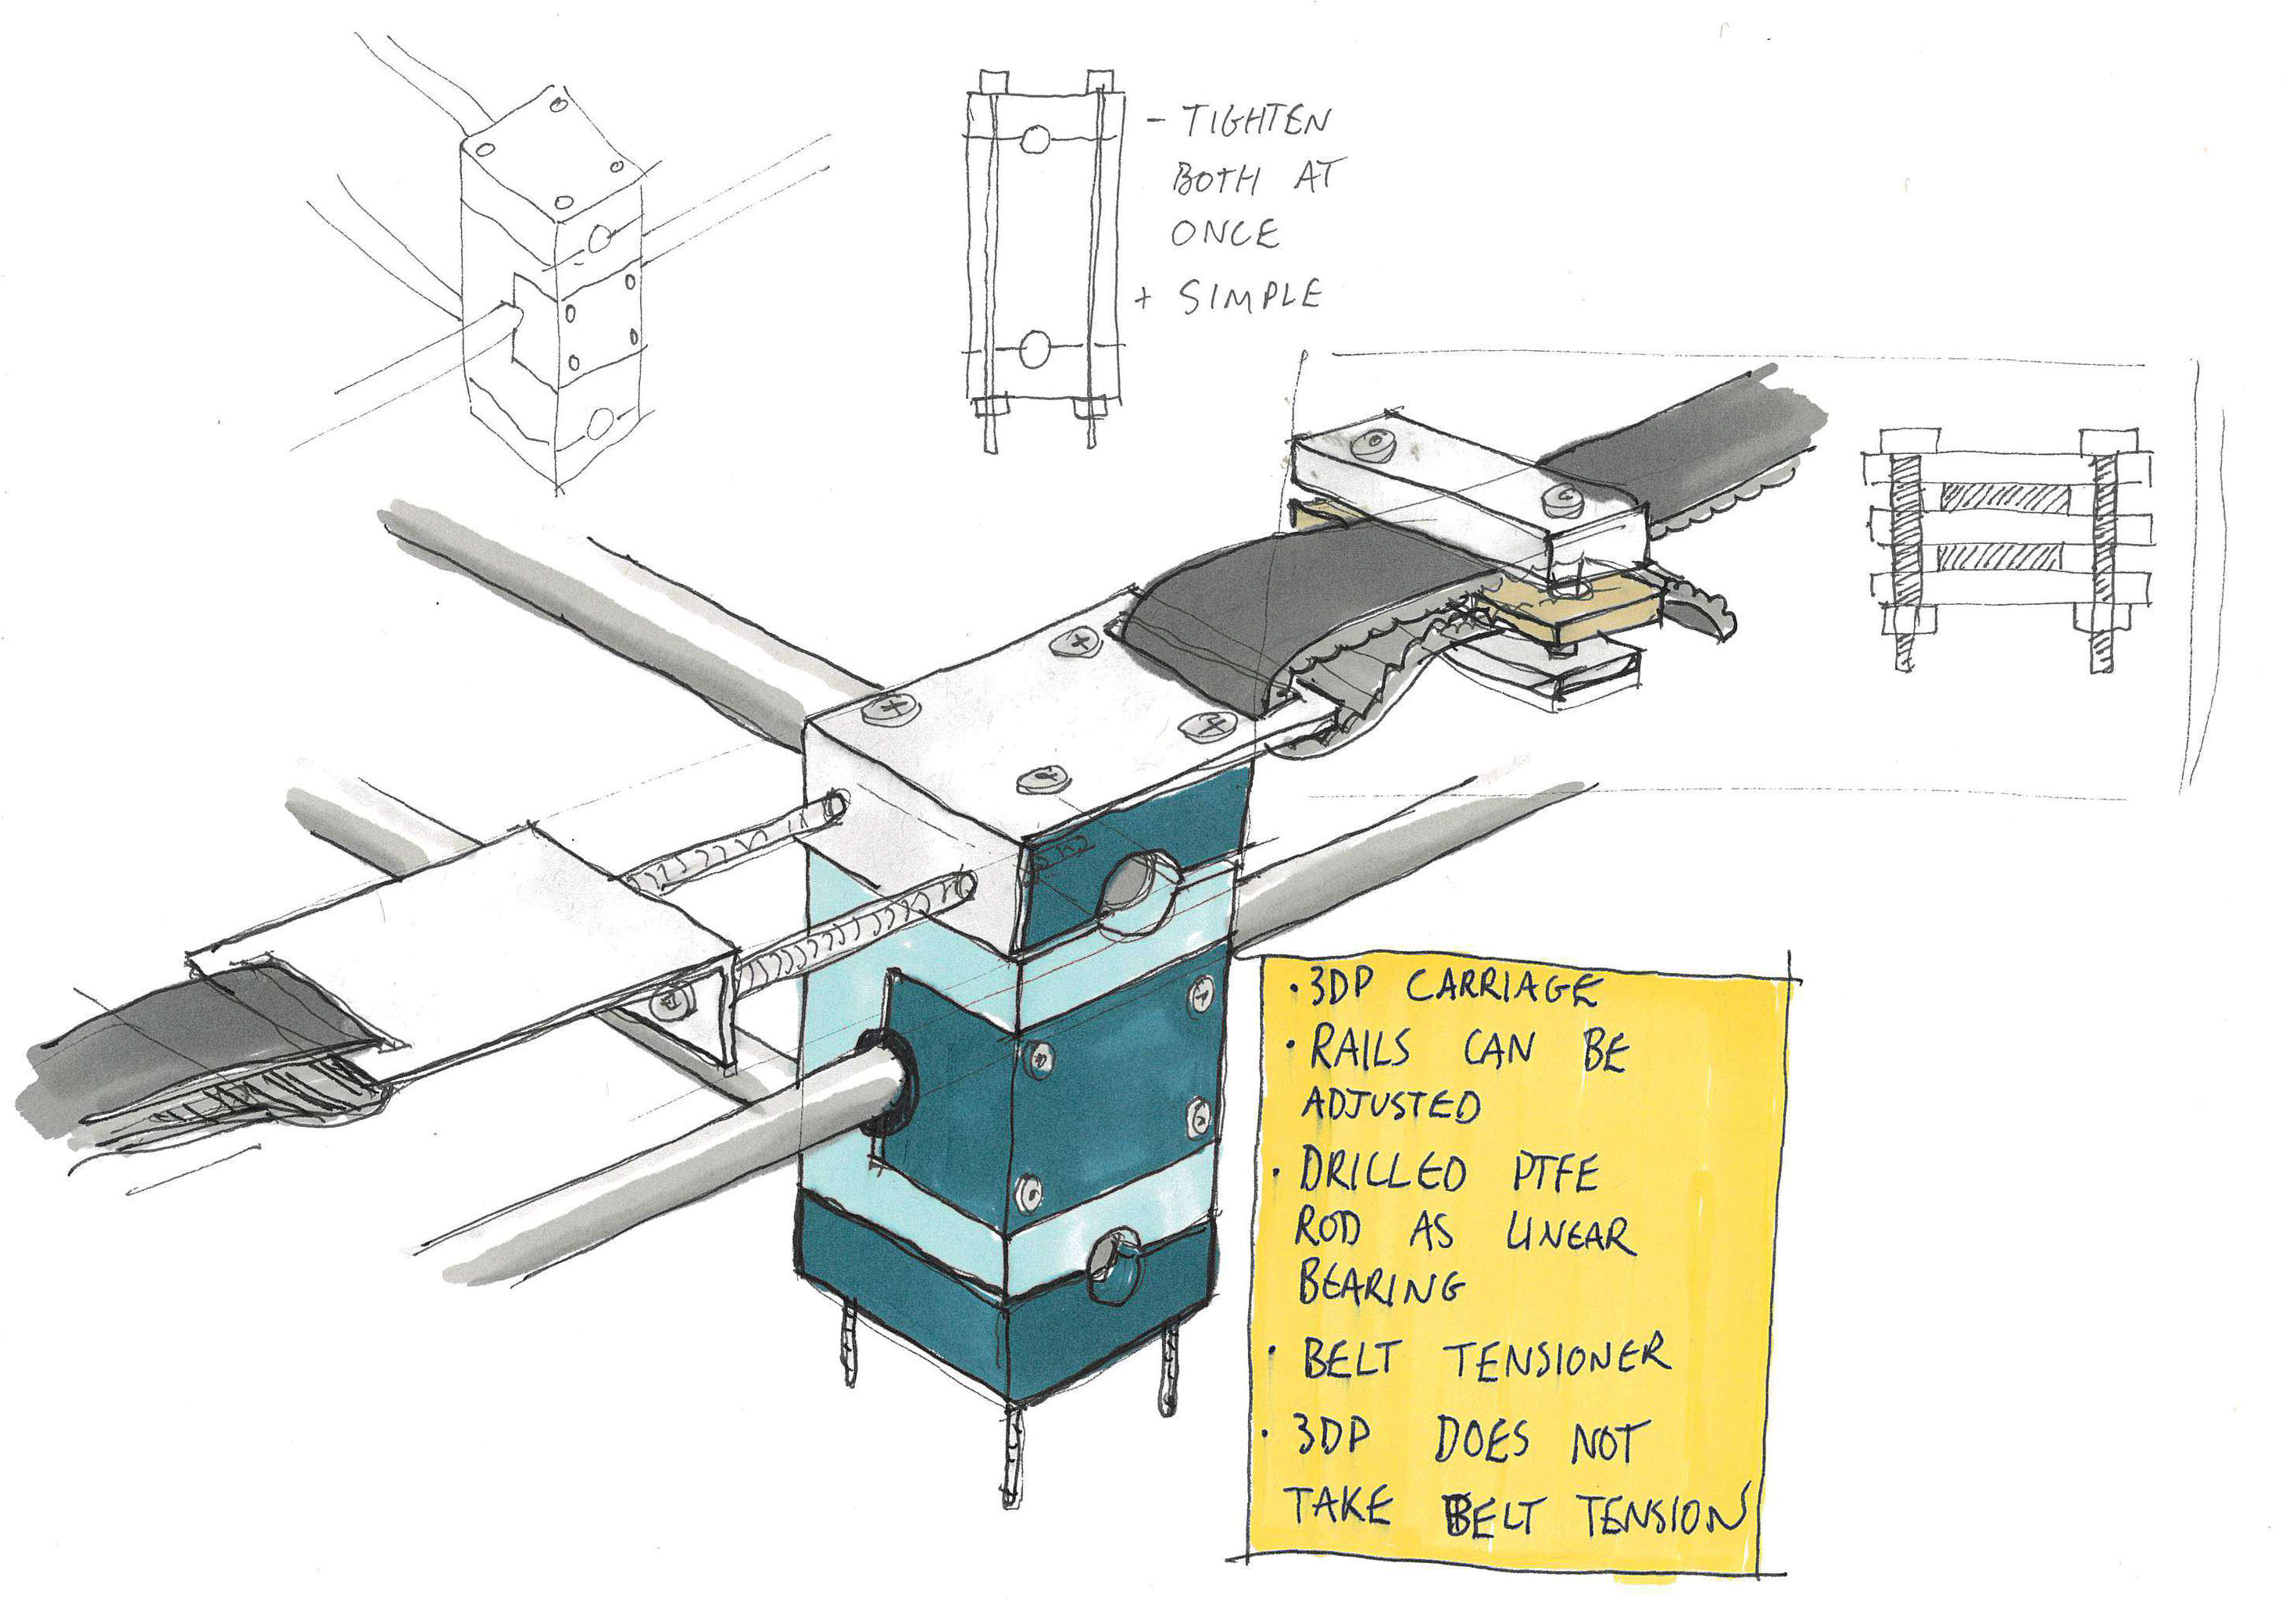 - TIGHTEN
BOTH AT
ONCE
+ SIMPLE
• 3DP CARRIAGE
• RAILS CAN BE
ADJUSTED
• DRILLED PTFE
ROD AS LINEAR
BEARING
• BELT TENSIONER
• 3DP DOES NOT
TAKE BELT TENSION